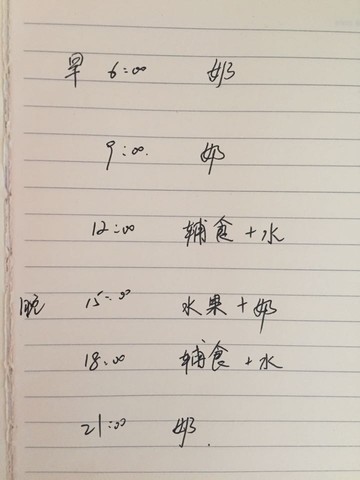 早 6:00 奶
9:00. 奶
12:00 辅食+水
晚 15:00 水果+奶
18:00 辅食+水
21:00 奶.